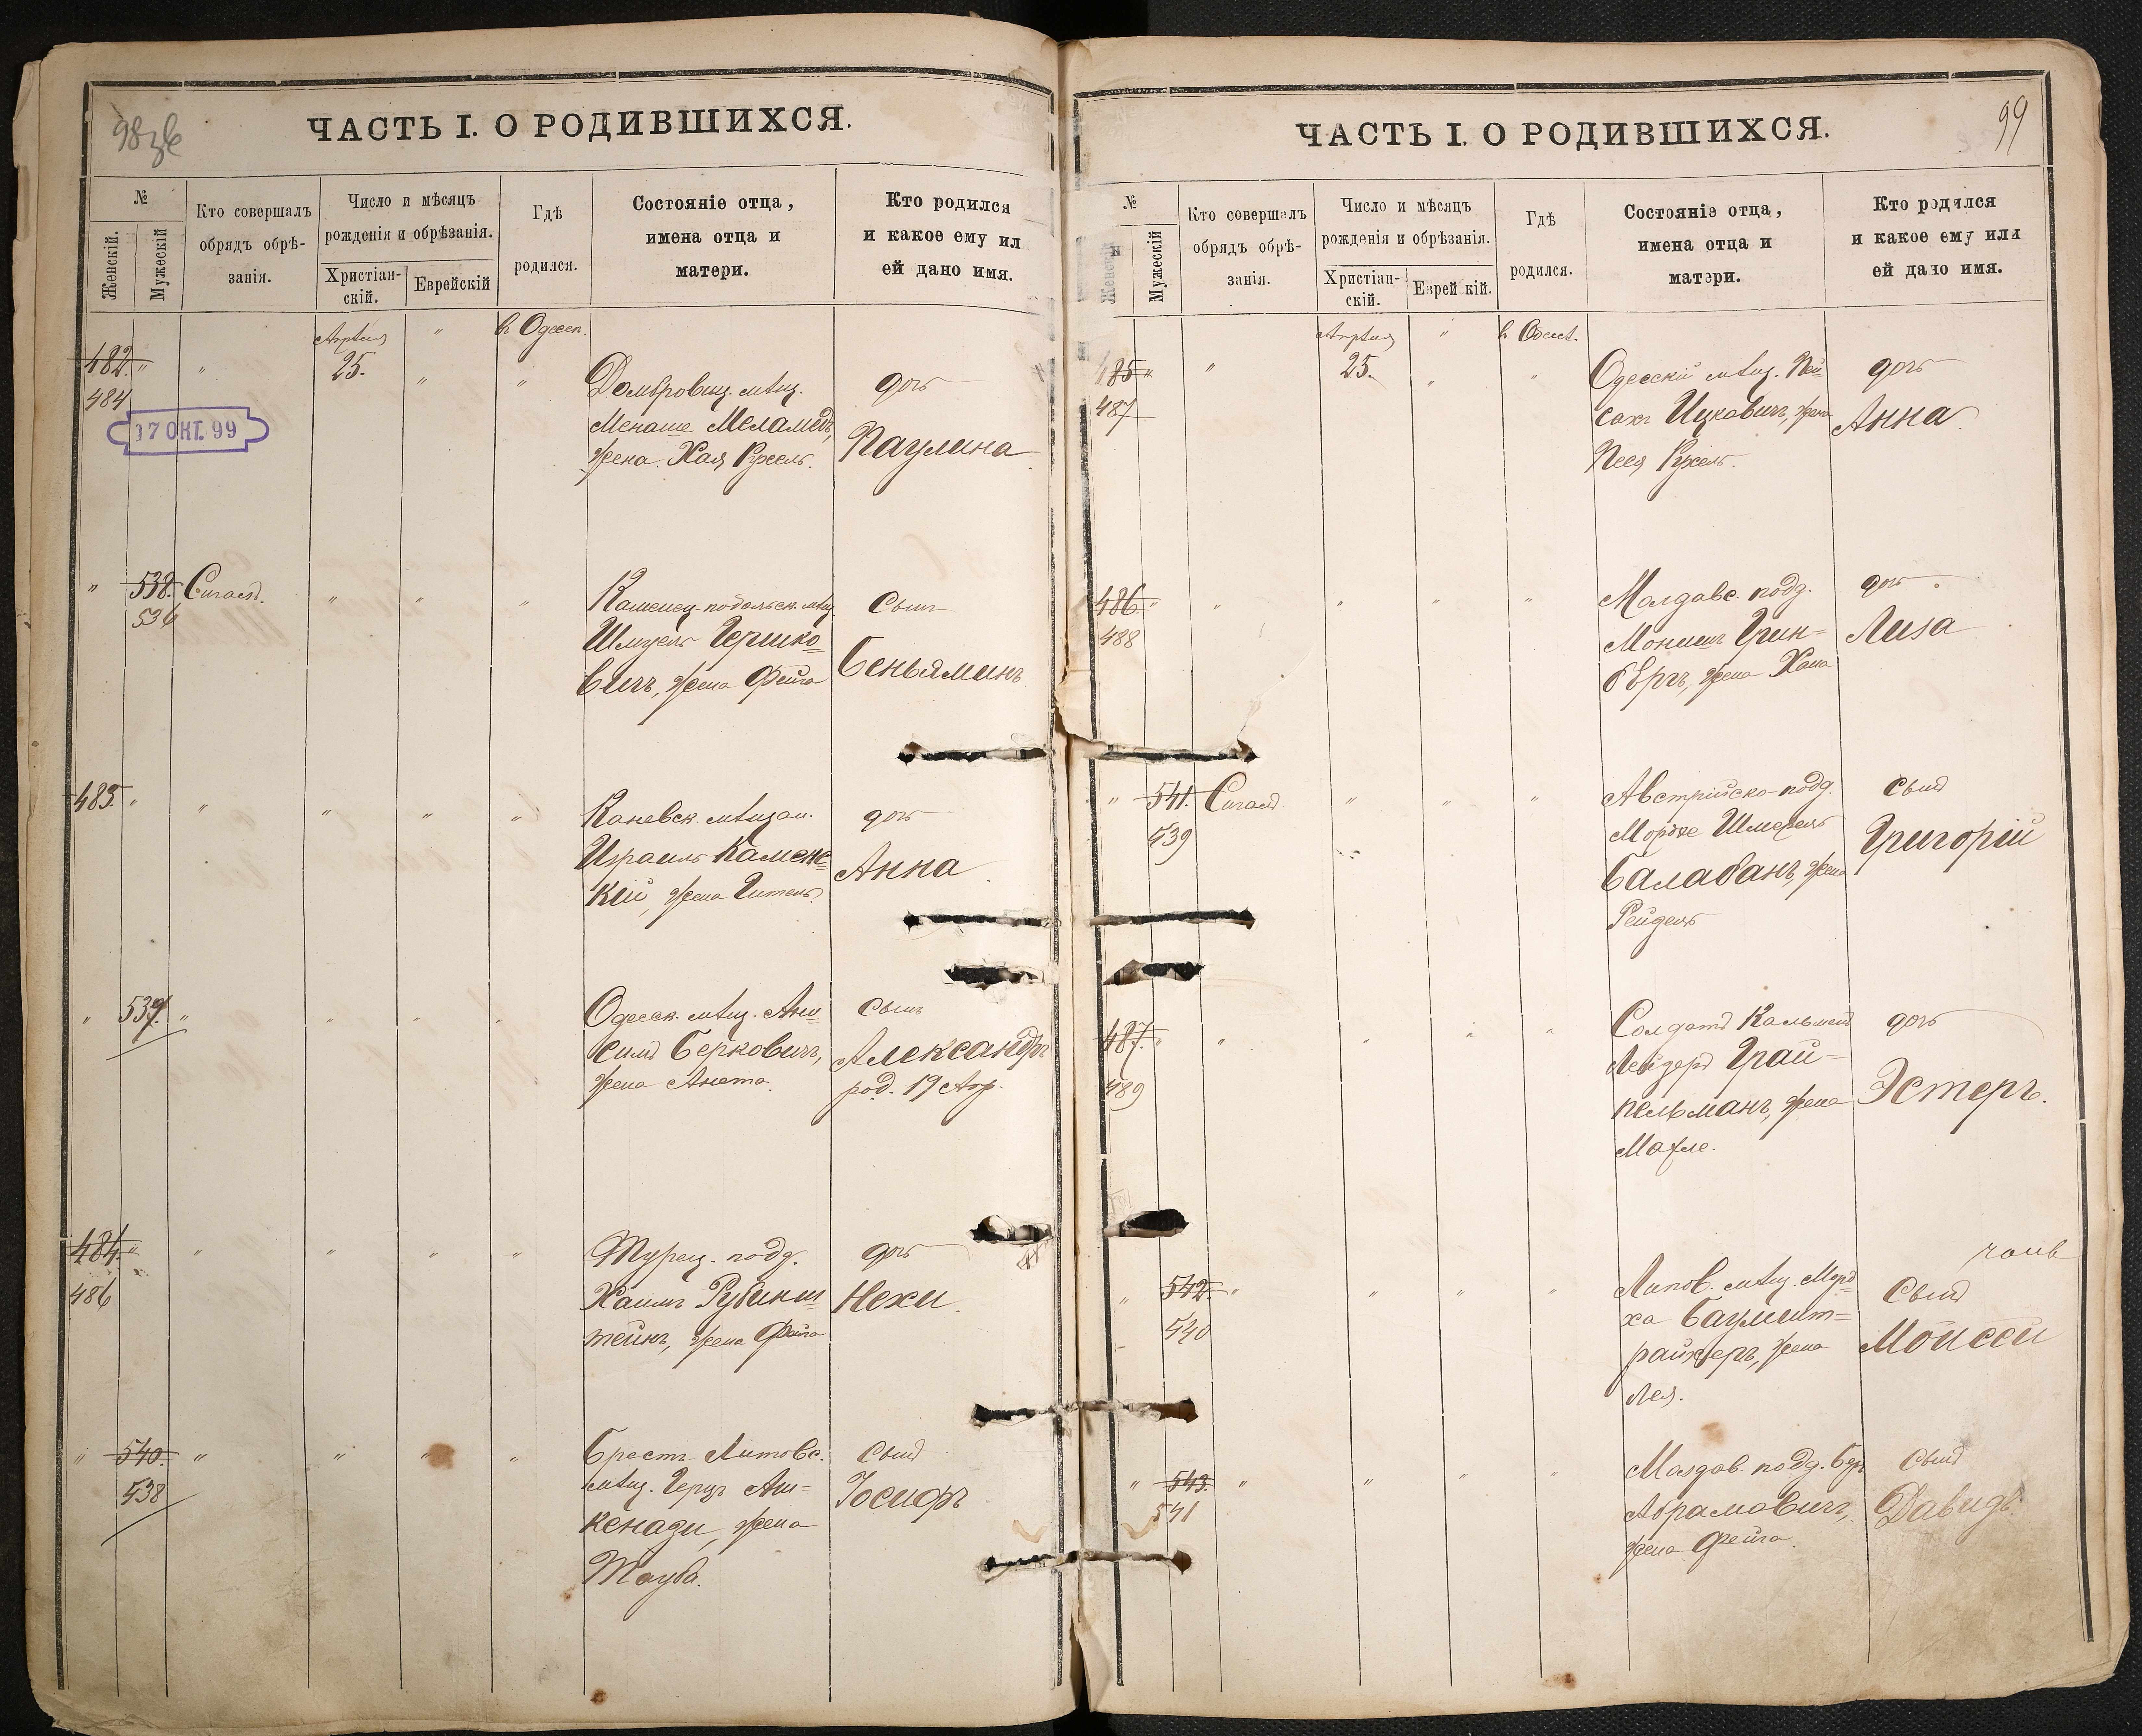 98 зв
ЧАСТЬ I. О РОДИВШИХСЯ.
№
Женскій.
Мужескій
Кто совершалъ
обрядъ обрѣ-
занія.
Число и мѣсяцъ
рожденія и обрѣзанія.
Христіан-
скій.
Еврейскій
Гдѣ
родился.
Состояніе отца,
имена отца и
матери.
Кто родился
и какое ему ил
ей дано имя.
Апрѣля " в Одессѣ.
482. " " 25. " "
484
17 ОКТ. 99
Домбровиц. мѣщ.
Менаше Меламедъ,
жена Хая Рухель.
дочь
Паулина
" 538. Сигалъ. " " "
536
Каменец-подольск. мѣщ.
Шмуель Гершко=
вичъ, жена Фейга
сынъ
Беньяминъ
483. " " " " "
Каневск. мѣщан.
Израиль Каменс=
кій, жена Гитель.
дочь
Анна
" 537. " " " "
Одесск. мѣщ. Ан=
симъ Берковичъ,
жена Анета.
сынъ
Александръ
род. 19 Апр.
484. " " " " "
486
Турец. подд.
Хаимъ Рубинш=
тейнъ, жена Фейга
дочь
Нехи.
" 540. " " " "
538
Брестъ-Литовс.
мѣщ. Герцъ Аш=
кенази, жена
Тауба.
сынъ
Іосифъ
99
ЧАСТЬ I. О РОДИВШИХСЯ.
№
Женскій
Мужескій
Кто совершалъ
обрядъ обрѣ-
занія.
Число и мѣсяцъ
рожденія и обрѣзанія.
Христіан-
скій.
Еврей кій.
Гдѣ
родился.
Состояніе отца,
имена отца и
матери.
Кто родился
и какое ему или
ей дано имя.
Апрѣля " в Одессѣ.
485 " " 25. " "
487
Одесскій мѣщ. Пей=
сахъ Ицковичъ, жена
Песя Рухель.
дочь
Анна.
486. " " " " "
488
Молдавс. подд.
Монишъ Грин=
бергъ, жена Хана
дочь
Лиза
" 541. Сигалъ. " " "
539
Австрійско-подд.
Мордке Шмерель
Балабанъ, жена
Рейдель
сынъ
Григорій
487. " " " " "
489
Солдатъ Кальменъ
Лейзеръ Грай=
пельманъ, жена
Махле.
дочь
Эстеръ.
" 542. " " " "
540
Липов. мѣщ. Морд=
ха Баумшт=
райхеръ, жена
Лея.
сынъ
Моисей
" 543. " " " "
541
Молдав. подд. Беръ
Абрамовичъ,
жена Фейга.
сынъ
Давидъ.